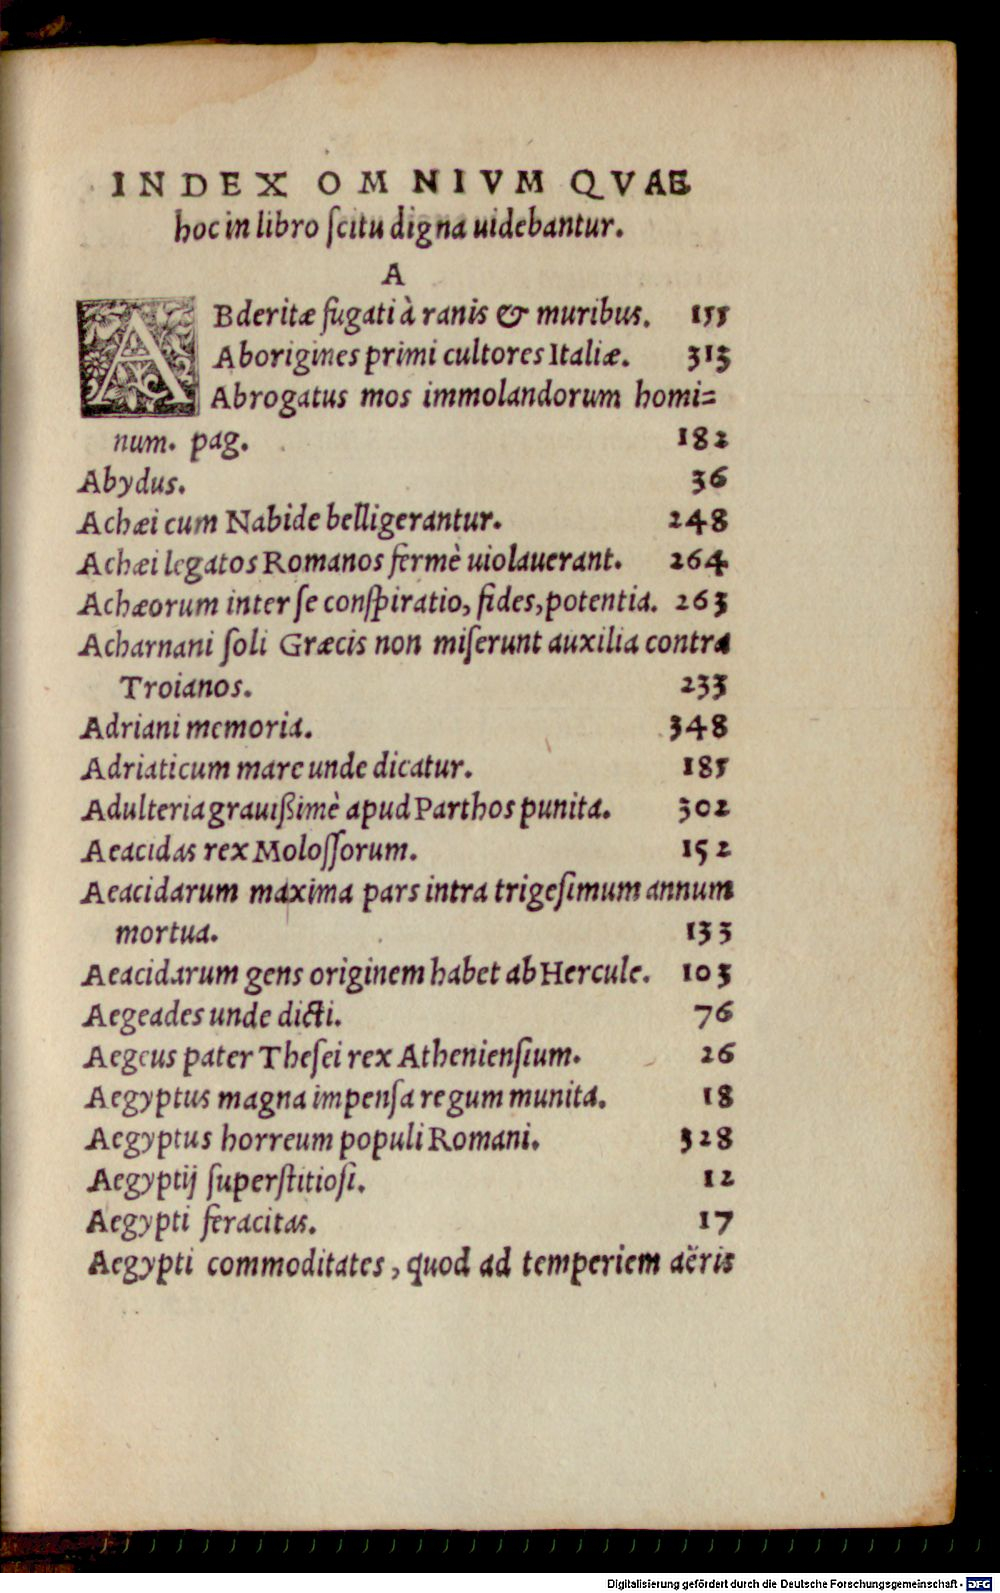 INDEX OMNIVM QVAE
hoc in libro ſcitu digna uidebantur.
A
ABderitæ fugati à ranis & muribus. 155
Aborigines primi cultores Italiæ. 313
Abrogatus mos immolandorum homi=
num. pag. 182
Abydus. 36
Achæi cum Nabide belligerantur. 248
Achæi legatos Romanos fermè uiolauerant. 264
Achæorum inter ſe conſpiratio, fides, potentia. 263
Acharnani ſoli Græcis non miſerunt auxilia contra
Troianos. 233
Adriani memoria. 348
Adriaticum mare unde dicatur. 185
Adulteria grauißimè apud Parthos punita. 302
Aeacidas rex Moloſſorum. 152
Aeacidarum maxima pars intra trigeſimum annum
mortua. 133
Aeacidarum gens originem habet ab Hercule. 103
Aegeades unde dicti. 76
Aegeus pater Theſei rex Athenienſium. 26
Aegyptus magna impenſa regum munita. 18
Aegyptus horreum populi Romani. 328
Aegyptij ſuperſtitioſi. 12
Aegypti feracitas. 17
Aegypti commoditates, quod ad temperiem aëris
Digitalisierung gefördert durch die Deutsche Forschungsgemeinschaft - DFG